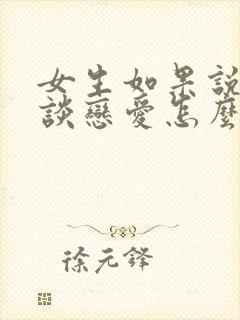 女生如果說
談戀愛怎麼
徐元鋒